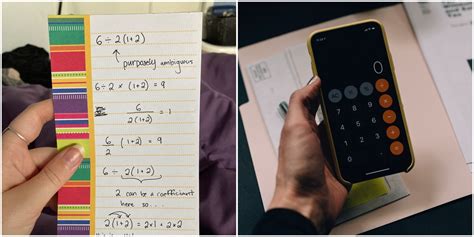 6÷2(1+2)
purposely ambiguous
6÷2×(1+2) = 9
6
2(1+2) = 1
6
2 (1+2) = 9
6÷ 2(1+2)
2 can be a
coefficient
here so...
2(1+2) = 2×1 + 2×2
0
7 8 9
4 5 6
1 2 3
0